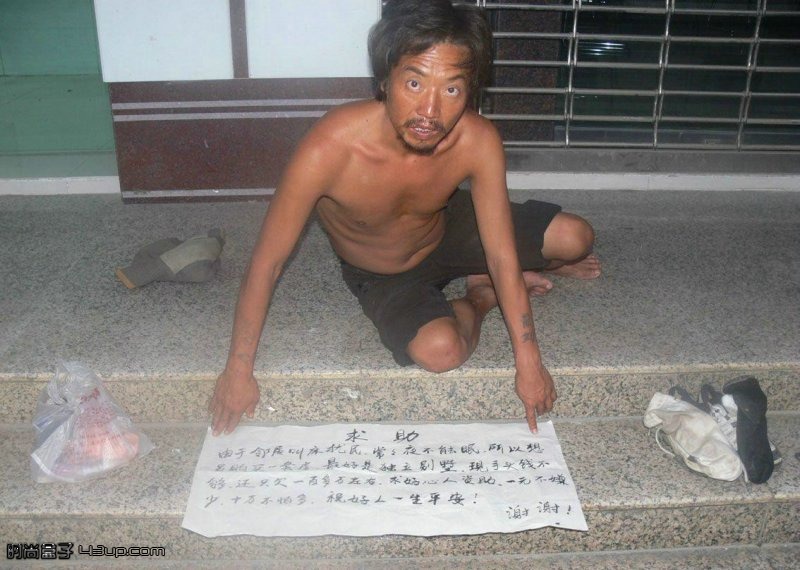 求助
由于邻居叫床扰民,常常夜不能眠,所以想
另购买一套房,最好是独立别墅,现手头钱不
够,还只欠一百多万左右,求好心人资助,一元不嫌
少,十万不怕多,祝好人一生平安!
谢谢!
时尚盒子 43up.com